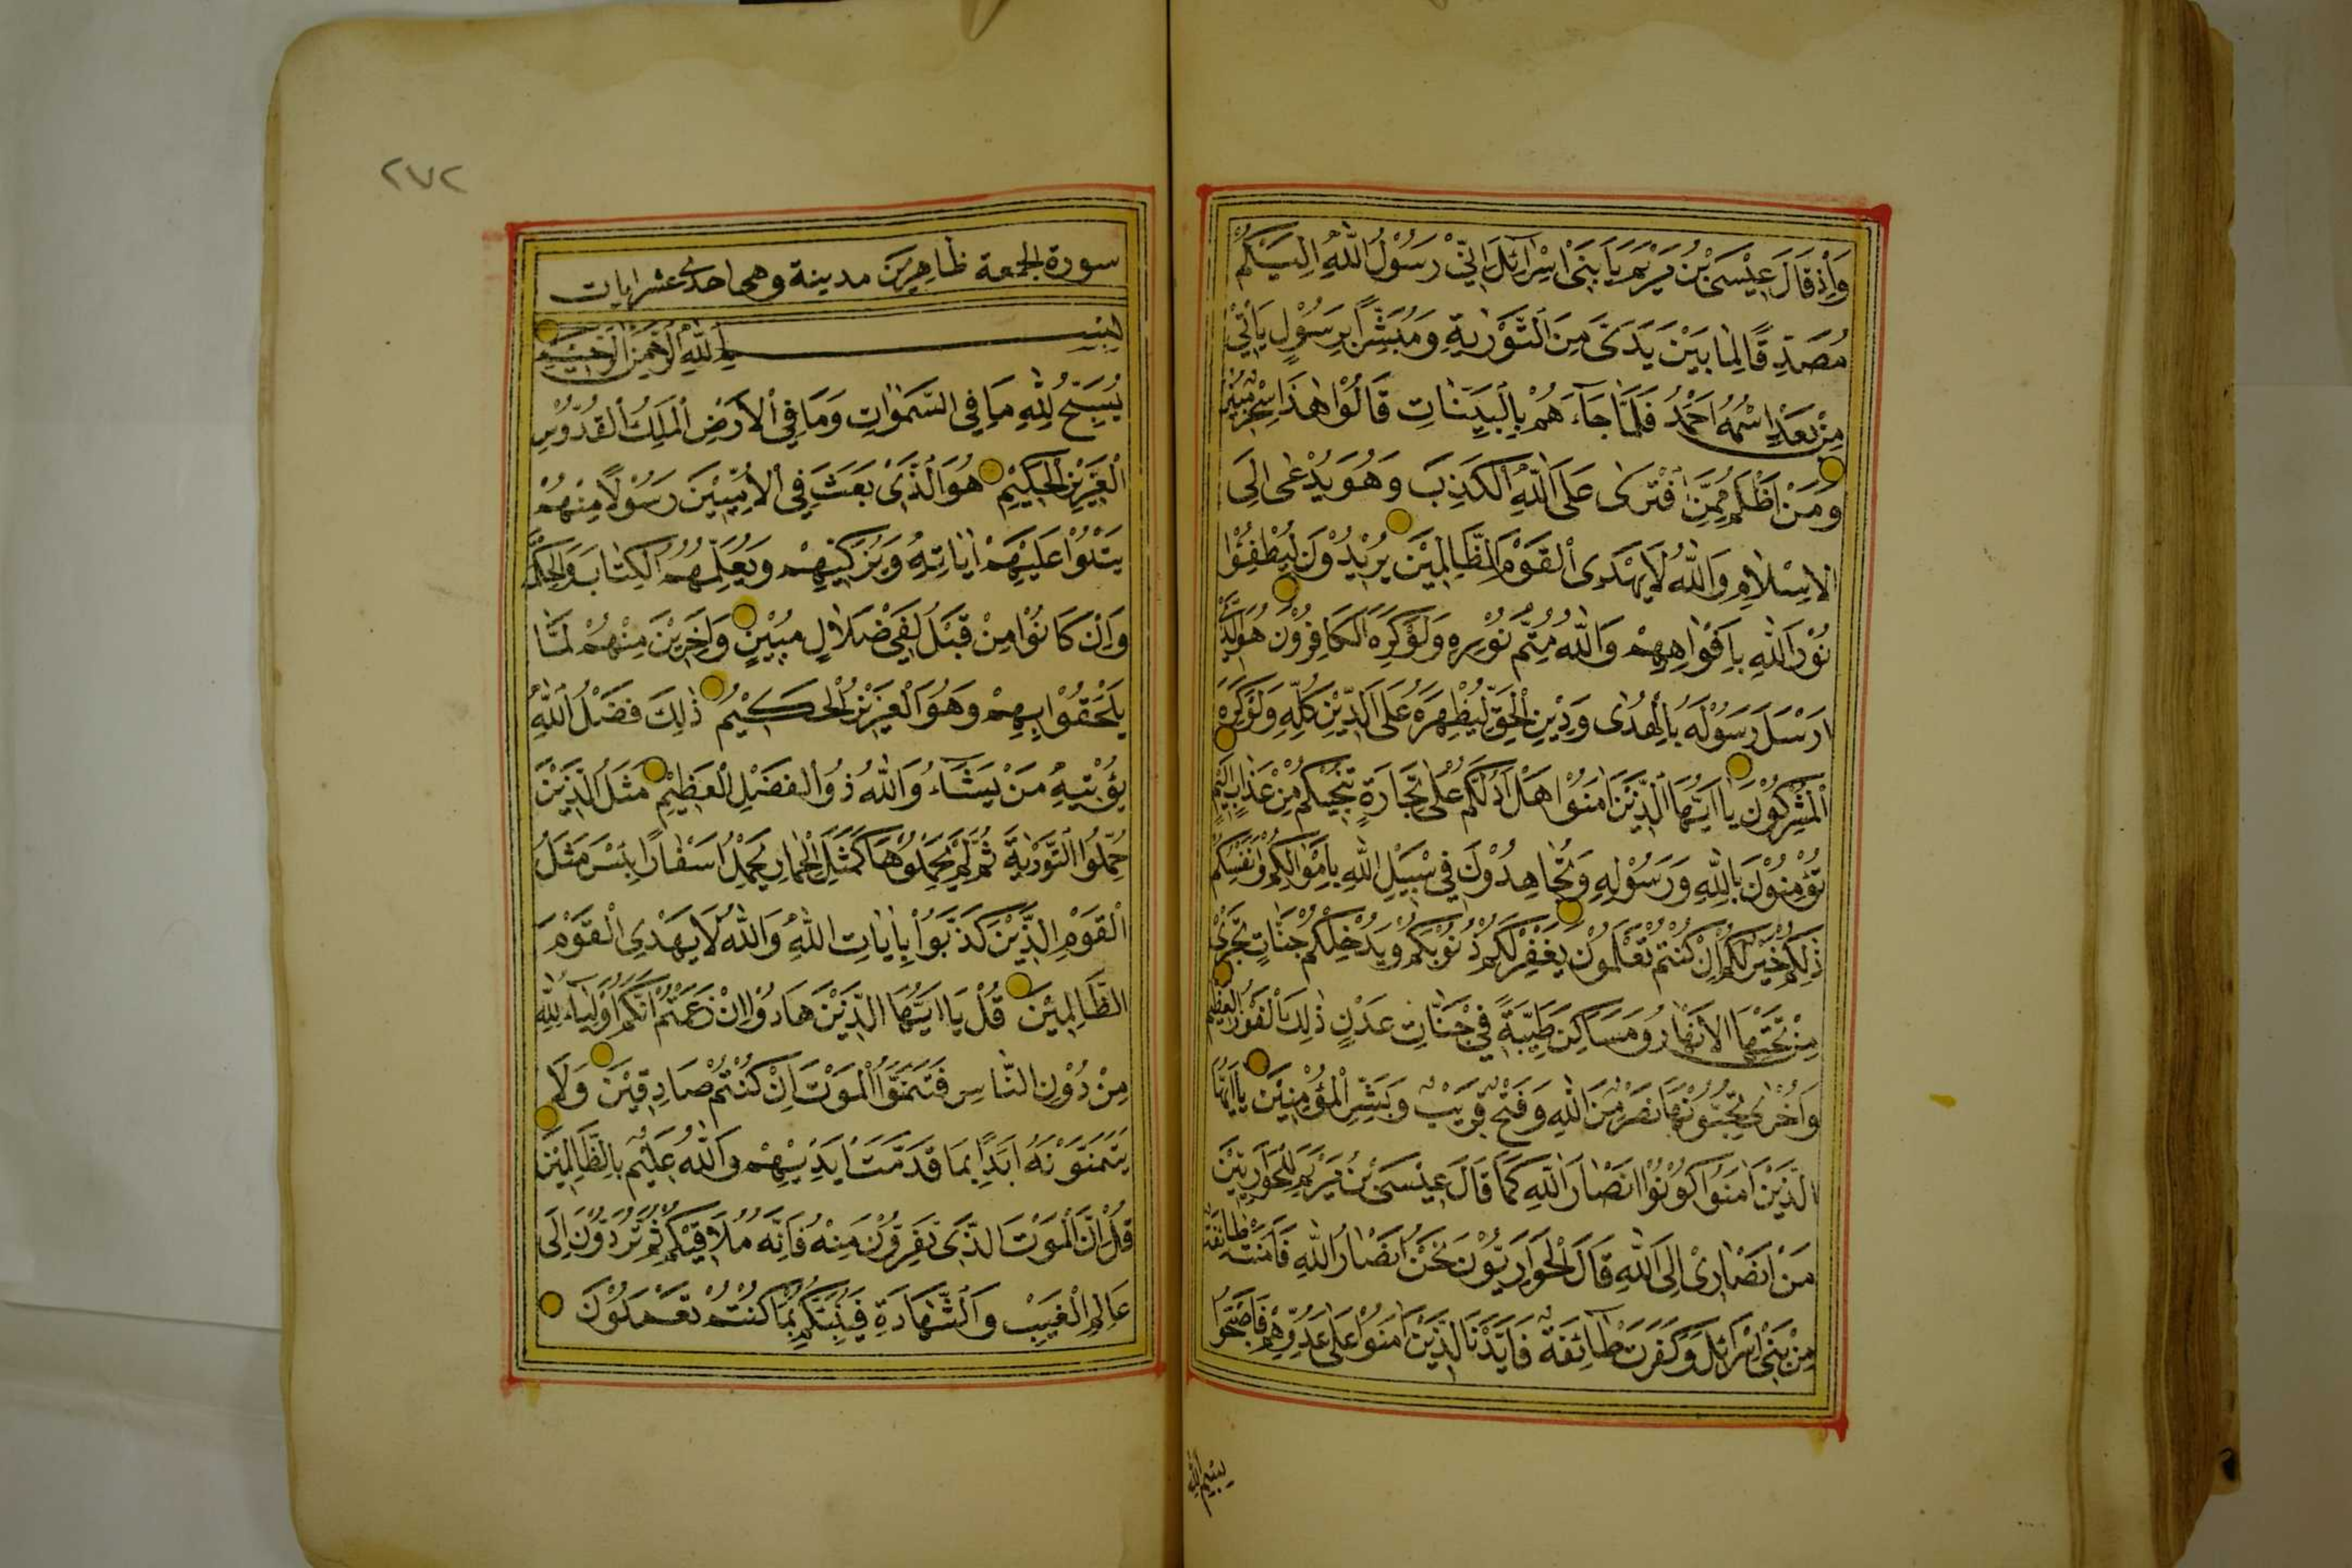 وَاِذْ قَالَ عِيْسَى بْنُ مَرْيَمَ يَا بَنِى اِسْرَائلَ اِنِّيْ رَسُوْلُ اللّٰهِ اِلَيْكُمْ
مُصَدِّقًا لِمَا بَيْنَ يَدَىَّ مِنَ التَّوْرٰيةِ وَمُبَشِّرًا بِرَسُوْلٍ يَأْتِيْ
مِنْ بَعْدِى اسْمُهُ اَحْمَدُ فَلَمَّا جَآءَهُمْ بِالْبَيِّنَاتِ قَالُوْا هٰذَا سِحْرٌ مُبِيْنٌ
وَمَنْ اَظْلَمُ مِمَّنِ افْتَرٰى عَلَى اللّٰهِ الْكَذِبَ وَهُوَ يُدْعٰى اِلَى
الْاِسْلَامِ وَاللّٰهُ لَا يَهْدِى الْقَوْمَ الظَّالِمِيْنَ يُرِيْدُوْنَ لِيُطْفِئُوْا
نُوْرَ اللّٰهِ بِاَفْوَاهِهِمْ وَاللّٰهُ مُتِمُّ نُوْرِهِ وَلَوْ كَرِهَ الْكَافِرُوْنَ هُوَ الَّذِيْ
اَرْسَلَ رَسُوْلَهُ بِالْهُدٰى وَدِيْنِ الْحَقِّ لِيُظْهِرَهُ عَلَى الدِّيْنِ كُلِّهِ وَلَوْ كَرِهَ
الْمُشْرِكُوْنَ يَا اَيُّهَا الَّذِيْنَ اٰمَنُوْا هَلْ اَدُلُّكُمْ عَلٰى تِجَارَةٍ تُنْجِيْكُمْ مِنْ عَذَابٍ اَلِيْمٍ
تُؤْمِنُوْنَ بِاللّٰهِ وَرَسُوْلِهِ وَتُجَاهِدُوْنَ فِيْ سَبِيْلِ اللّٰهِ بِاَمْوَالِكُمْ وَاَنْفُسِكُمْ
ذٰلِكُمْ خَيْرٌ لَكُمْ اِنْ كُنْتُمْ تَعْلَمُوْنَ يَغْفِرْ لَكُمْ ذُنُوْبَكُمْ وَيُدْخِلْكُمْ جَنَّاتٍ تَجْرِيْ
مِنْ تَحْتِهَا الْاَنْهَارُ وَمَسَاكِنَ طَيِّبَةً فِيْ جَنَّاتِ عَدْنٍ ذٰلِكَ الْفَوْزُ الْعَظِيْمُ
وَاُخْرٰى تُحِبُّوْنَهَا نَصْرٌ مِنَ اللّٰهِ وَفَتْحٌ قَرِيْبٌ وَبَشِّرِ الْمُؤْمِنِيْنَ يَا اَيُّهَا
الَّذِيْنَ اٰمَنُوْا كُوْنُوْا اَنْصَارَ اللّٰهِ كَمَا قَالَ عِيْسَى بْنُ مَرْيَمَ لِلْحَوَارِيِّيْنَ
مَنْ اَنْصَارِىْ اِلَى اللّٰهِ قَالَ الْحَوَارِيُّوْنَ نَحْنُ اَنْصَارُ اللّٰهِ فَاٰمَنَتْ طَائِفَةٌ
مِنْ بَنِيْ اِسْرَائلَ وَكَفَرَتْ طَائِفَةٌ فَاَيَّدْنَا الَّذِيْنَ اٰمَنُوْا عَلٰى عَدُوِّهِمْ فَاَصْبَحُوْا
بسم الله
٢٧٢
سورة الجمعة ظَاهِرِيْنَ مدينة وهى احدى عشر ايات
بِسْمِ اللّٰهِ الرَّحْمٰنِ الرَّحِيْمِ
يُسَبِّحُ لِلّٰهِ مَا فِي السَّمٰوٰاتِ وَمَا فِي الْاَرْضِ الْمَلِكِ الْقُدُّوْسِ
الْعَزِيْزِ الْحَكِيْمِ هُوَ الَّذِىْ بَعَثَ فِي الْاُمِّيِّيْنَ رَسُوْلًا مِنْهُمْ
يَتْلُوْا عَلَيْهِمْ اٰيَاتِهِ وَيُزَكِّيْهِمْ وَيُعَلِّمُهُمُ الْكِتَابَ وَالْحِكْمَةَ
وَاِنْ كَانُوْا مِنْ قَبْلُ لَفِيْ ضَلَالٍ مُبِيْنٍ وَاٰخَرِيْنَ مِنْهُمْ لَمَّا
يَلْحَقُوْا بِهِمْ وَهُوَ الْعَزِيْزُ الْحَكِيْمُ ذٰلِكَ فَضْلُ اللّٰهِ
يُؤْتِيْهِ مَنْ يَشَآءُ وَاللّٰهُ ذُو الْفَضْلِ الْعَظِيْمِ مَثَلُ الَّذِيْنَ
حُمِّلُوا التَّوْرٰيةَ ثُمَّ لَمْ يَحْمِلُوْهَا كَمَثَلِ الْحِمَارِ يَحْمِلُ اَسْفَارًا بِئْسَ مَثَلُ
الْقَوْمِ الَّذِيْنَ كَذَّبُوْا بِاٰيَاتِ اللّٰهِ وَاللّٰهُ لَا يَهْدِى الْقَوْمَ
الظَّالِمِيْنَ قُلْ يَا اَيُّهَا الَّذِيْنَ هَادُوْا اِنْ زَعَمْتُمْ اَنَّكُمْ اَوْلِيَآءُ لِلّٰهِ
مِنْ دُوْنِ النَّاسِ فَتَمَنَّوُا الْمَوْتَ اِنْ كُنْتُمْ صَادِقِيْنَ وَلَا
يَتَمَنَّوْنَهُ اَبَدًا بِمَا قَدَّمَتْ اَيْدِيْهِمْ وَاللّٰهُ عَلِيْمٌ بِالظَّالِمِيْنَ
قُلْ اِنَّ الْمَوْتَ الَّذِىْ تَفِرُّوْنَ مِنْهُ فَاِنَّهُ مُلَاقِيْكُمْ ثُمَّ تُرَدُّوْنَ اِلَى
عَالِمِ الْغَيْبِ وَالشَّهَادَةِ فَيُنَبِّئُكُمْ بِمَا كُنْتُمْ تَعْمَلُوْنَ